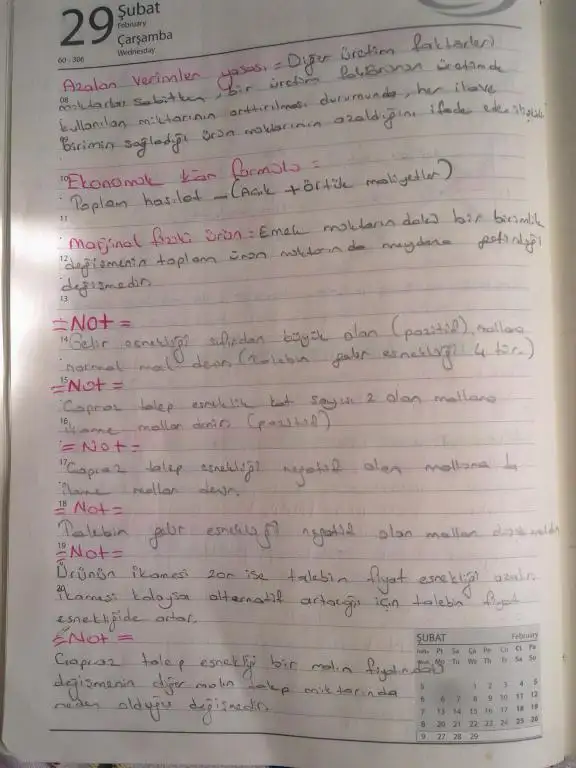 29 Şubat
February
Çarşamba
Wednesday
60 - 306
Azalan verimler yasası = Diğer üretim faktörleri
08 miktarları sabitken, bir üretim faktörünün üretimde
kullanılan miktarının arttırılması durumunda, her ilave
09 birimin sağladığı ürün miktarının azaldığını ifade eder
10 Ekonomik kâr formülü =
Toplam hasılat - (Açık + örtük maliyetler)
11
Marjinal fiziki ürün = Emek miktarındaki bir birimlik
12 değişmenin toplam ürün miktarında meydana getirdiği
değişmedir.
13
= Not =
14 Gelir esnekliği sıfırdan büyük olan (pozitif) mallara
normal mal denir (Talebin gelir esnekliği 4 tür.)
15 = Not =
Çapraz talep esneklik kat sayısı 2 olan mallara
16 ikame mallar denir (pozitif)
= Not =
17 Çapraz talep esnekliği negatif olan mallara
ikame mallar denir.
18 = Not =
Talebin gelir esnekliği negatif olan mallar
19 = Not =
Ürünün ikamesi zor ise talebin fiyat esnekliği azalır.
20 ikamesi kolaysa alternatif artacağı için talebin fiyat
esnekliğide artar.
= Not =
Çapraz talep esnekliği bir malın fiyatındaki
değişmenin diğer malın talep miktarında
neden olduğu değişmedir.
ŞUBAT February
Pt Sa Ça Pe Cu Ct Pa
Mo Tu We Th Fr Sa Su
5 1 2 3 4 5
6 6 7 8 9 10 11 12
7 13 14 15 16 17 18 19
8 20 21 22 23 24 25 26
9 27 28 29